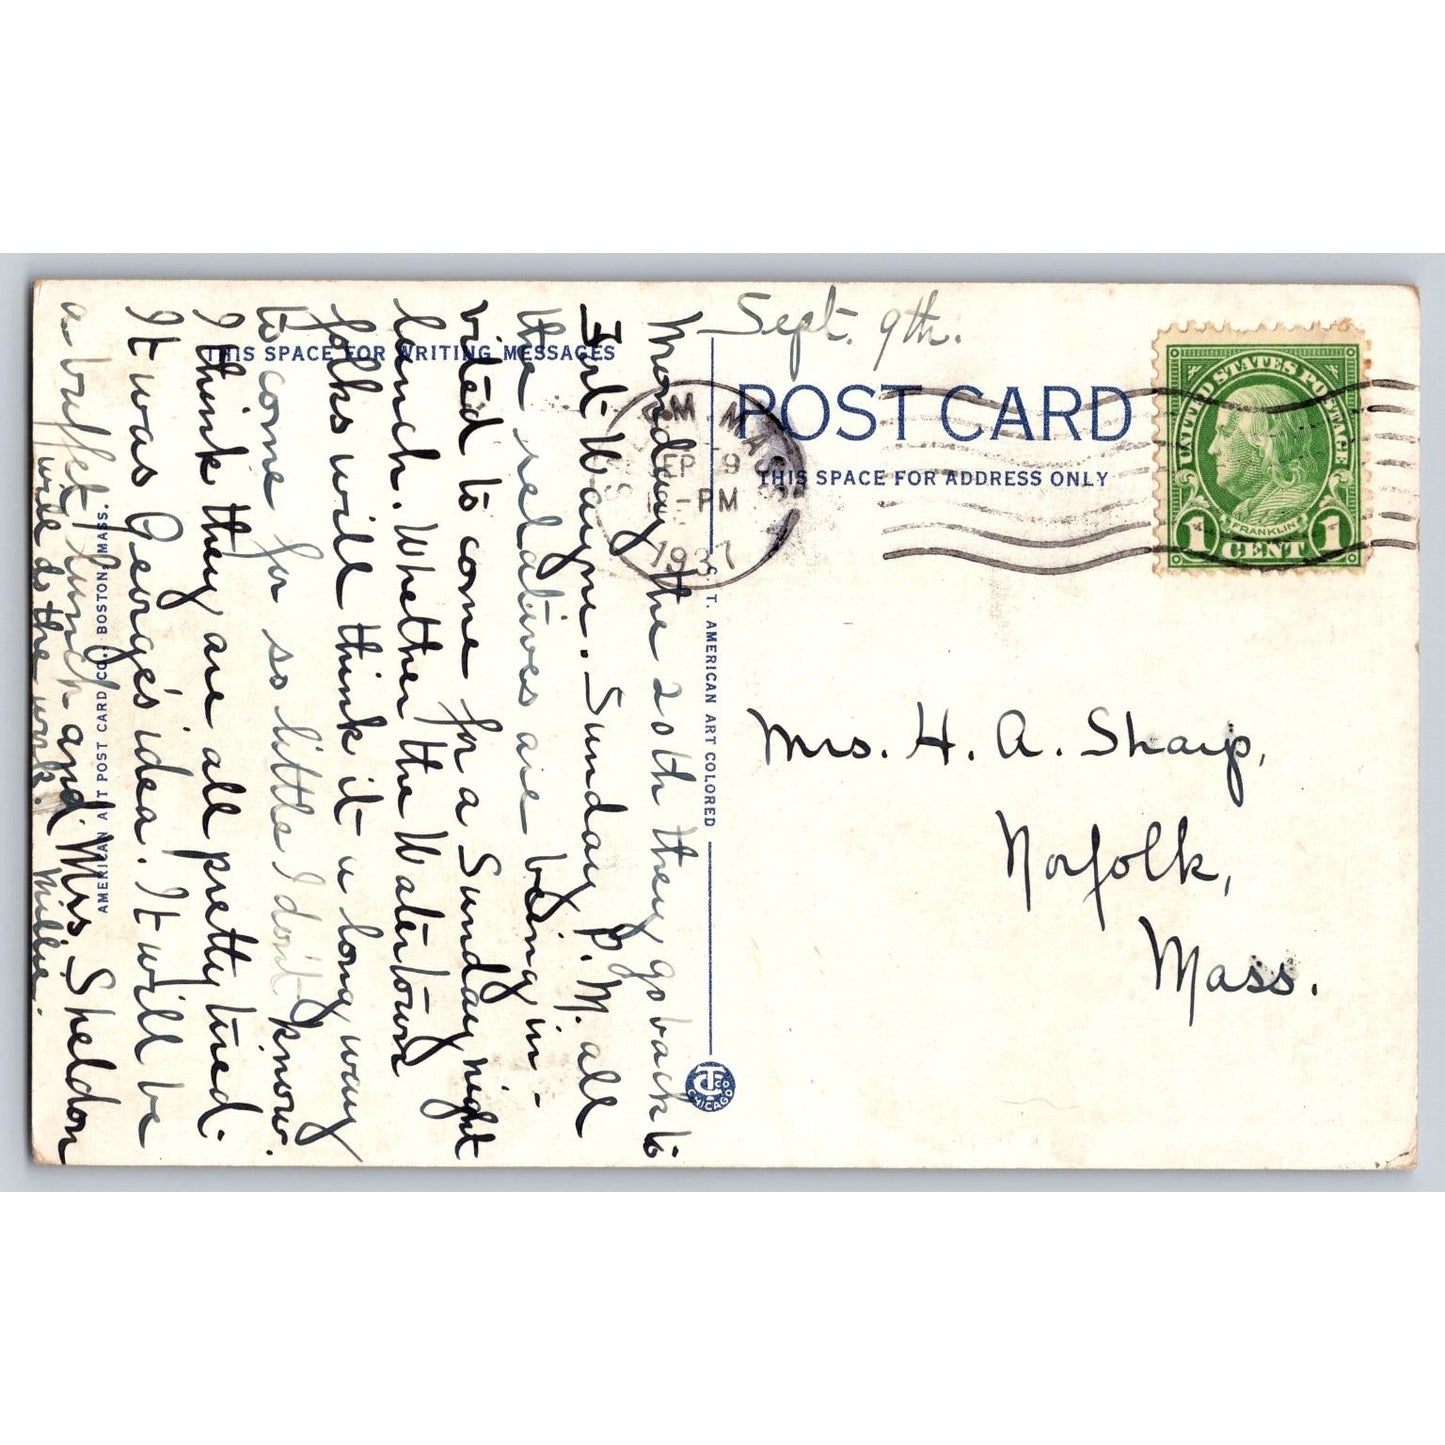 Sept. 9th.
Monday the 20th they go back to
Fort Wayne. Sunday P.M. all
the relatives are being in-
vited to come for a Sunday night
lunch. Whether the Watertown
folks will think it a long way
to come for so little I don't know.
I think they are all pretty tired.
It was George's idea. It will be
a buffet lunch and Mrs. Sheldon
will do the work.
Millie.
THIS SPACE FOR WRITING MESSAGES
AMERICAN ART POST CARD CO., BOSTON, MASS.
C. T. AMERICAN ART COLORED
CT CO
CHICAGO
POST CARD
THIS SPACE FOR ADDRESS ONLY
MASS
SEP 9
-PM
1937
UNITED STATES POSTAGE
FRANKLIN
1 CENT 1
Mrs. H. A. Sharp,
Norfolk,
Mass.